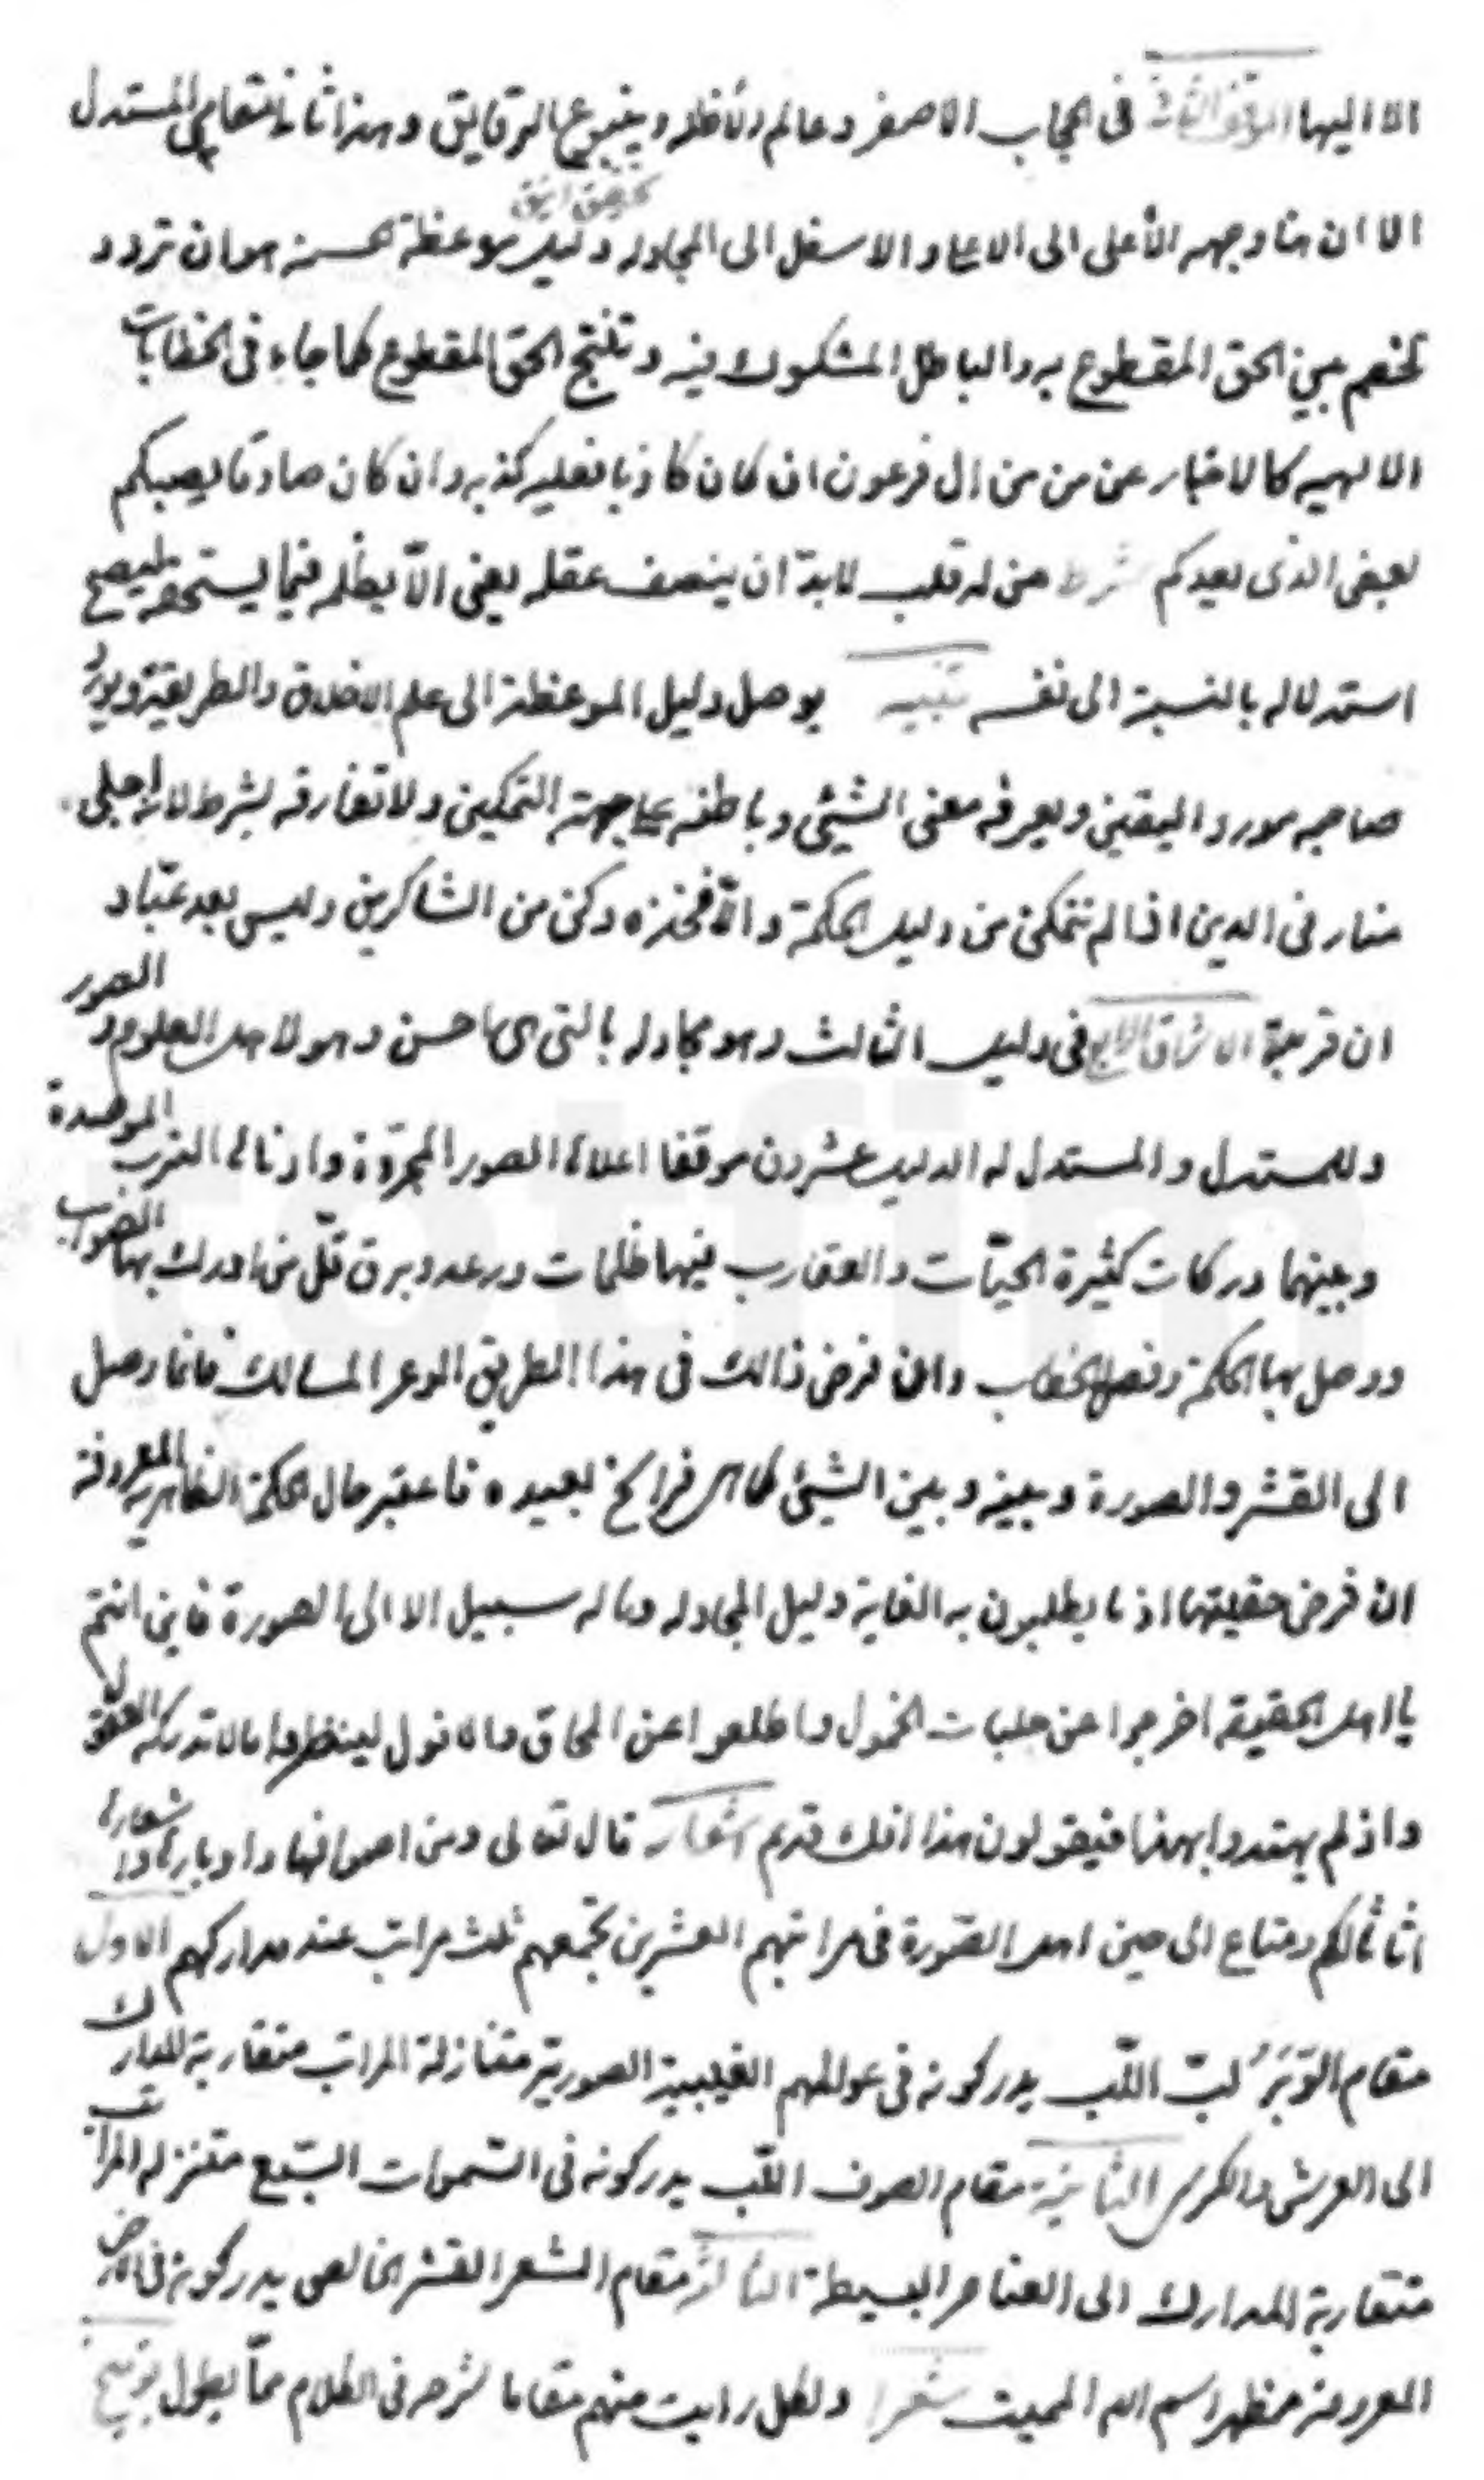 الا اليها الموقف الثالث فى الحجاب الاصفر وعالم الأظله وينبوع الرقايق وهذا ثانى مقامى المستدل
الا ان هنا وجهه الأعلى الى الاعلى والاسفل الى المجادله دليل موعظة حسنه هو ان تردد
الخصم بين الحق المقطوع به والباطل المشكوك فيه وتنتج الحق المقطوع كما جاء فى الخطابات
الالهيه كالاخبار عن من من ال فرعون ان كان كاذبا فعليه كذبه وان كان صادقا يصبكم
بعض الذى يعدكم شرط من له قلب لابدّ ان ينصف عقله يعنى الّا يظلمه فيما يستحقه ليصح
استدلاله بالنسبة الى نفسه تنبيه يوصل دليل الموعظة الى علم الاخلاق والطريقة ويورد
صاحبه مورد اليقين ويعرفه معنى الشيئى وباطنه على جهة التمكين ولا تفارقه بشرط لانه اجلى
منار فى الدين اذا لم تتمكن من دليل الحكمة والّا فخذه وكن من الشاكرين وليس بعد عبّاد
ان قرية الاشراق الرابع فى دليل الثالث وهو مجادله بالتى هى احسن وهو لاهل العلوم والصور
وللمستدل والمستدل له الدليل عشرون موقفا اعلاها الصور المجرّدة وادناها الترب الموصدة
وبينهما دركات كثيرة الحيّات والعقارب فيها ظلمات ورعد وبرق قلّ من ادرك بها الصواب
ووصل بها الحكمة وفصل الخطاب وان فرض ذالك فى هذا الطريق الوعر المسالك فانما وصل
الى القشر والصورة وبينه وبين الشيئى كماهى فراسخ بعيده فاعتبر حال الحكمة الظاهرية المعروفة
ان فرض حقيقتها اذ ما يطلبون به الغاية دليل المجادله وماله سبيل الا الى الصورة فاين انتم
يا اهل الحقيقه اخرجوا من جلبات الخمول واطلعوا عن المحاق والافول لينظروا مالا تدركه العقول
واذ لم يهتدوا بهذا فيقولون هذا افك قديم اشعار قال تعالى ومن اصوافها واوبارها واشعارها
اثاثا لكم ومتاع الى حين اهل الصّورة فى مراتبهم العشرين تجمعهم ثلث مراتب عند مداركهم الاول
مقام الوَبَر لبّ اللّب يدركونه فى عوالمهم الغيبية الصورية متنازلة المراتب متقاربة المدارك
الى العرش والكرسى الثانية مقام الصوف اللّب يدركونه فى السّموات السّبع متنزله المراتب
متقاربة المدارك الى العناصر البسيطة الثالثة مقام الشعر القشر الخالص يدركونه فى الارض
المعروفة مظهر اسم الله المميت شعرا ولكل رايت منهم مقاما شرحه فى الكلام ممّا يطول توضيح